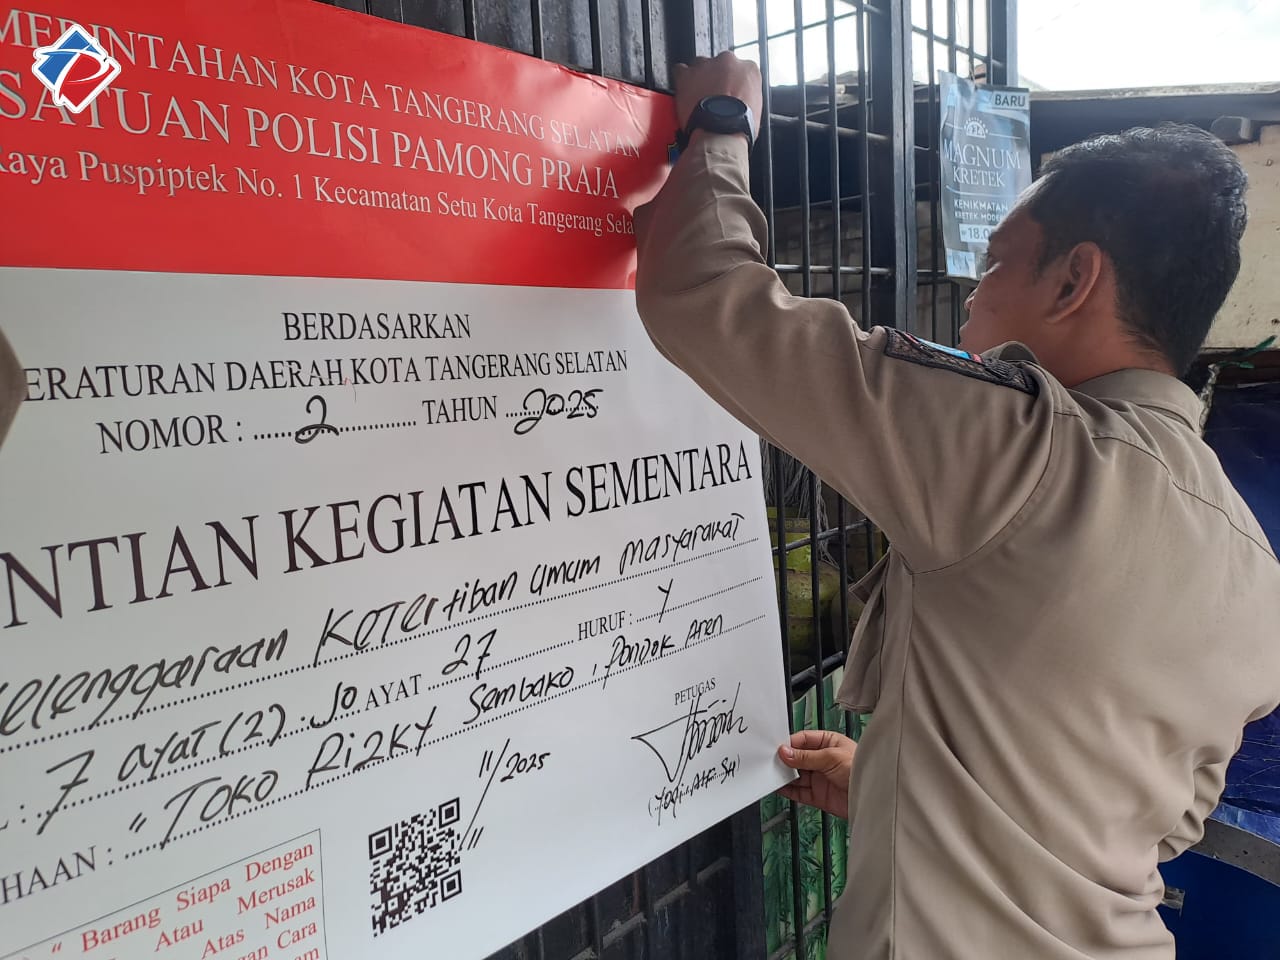 MERINTAHAN KOTA TANGERANG SELATAN
SATUAN POLISI PAMONG PRAJA
Raya Puspiptek No. 1 Kecamatan Setu Kota Tangerang Sela
BERDASARKAN
ERATURAN DAERAH KOTA TANGERANG SELATAN
NOMOR : 2 TAHUN 2025
NTIAN KEGIATAN SEMENTARA
elenggaraan Ketertiban Umum Masyarakat
: 7 ayat (2) Jo AYAT 27 HURUF : Y
HAAN : " TOKO RIZKY Sembako, Pondok Aren
11/11/2025
PETUGAS
" Barang Siapa Dengan
Atau Merusak
Atas Nama
gan Cara
BARU
MAGNUM
KRETEK
KENIKMATAN
KRETEK MODE